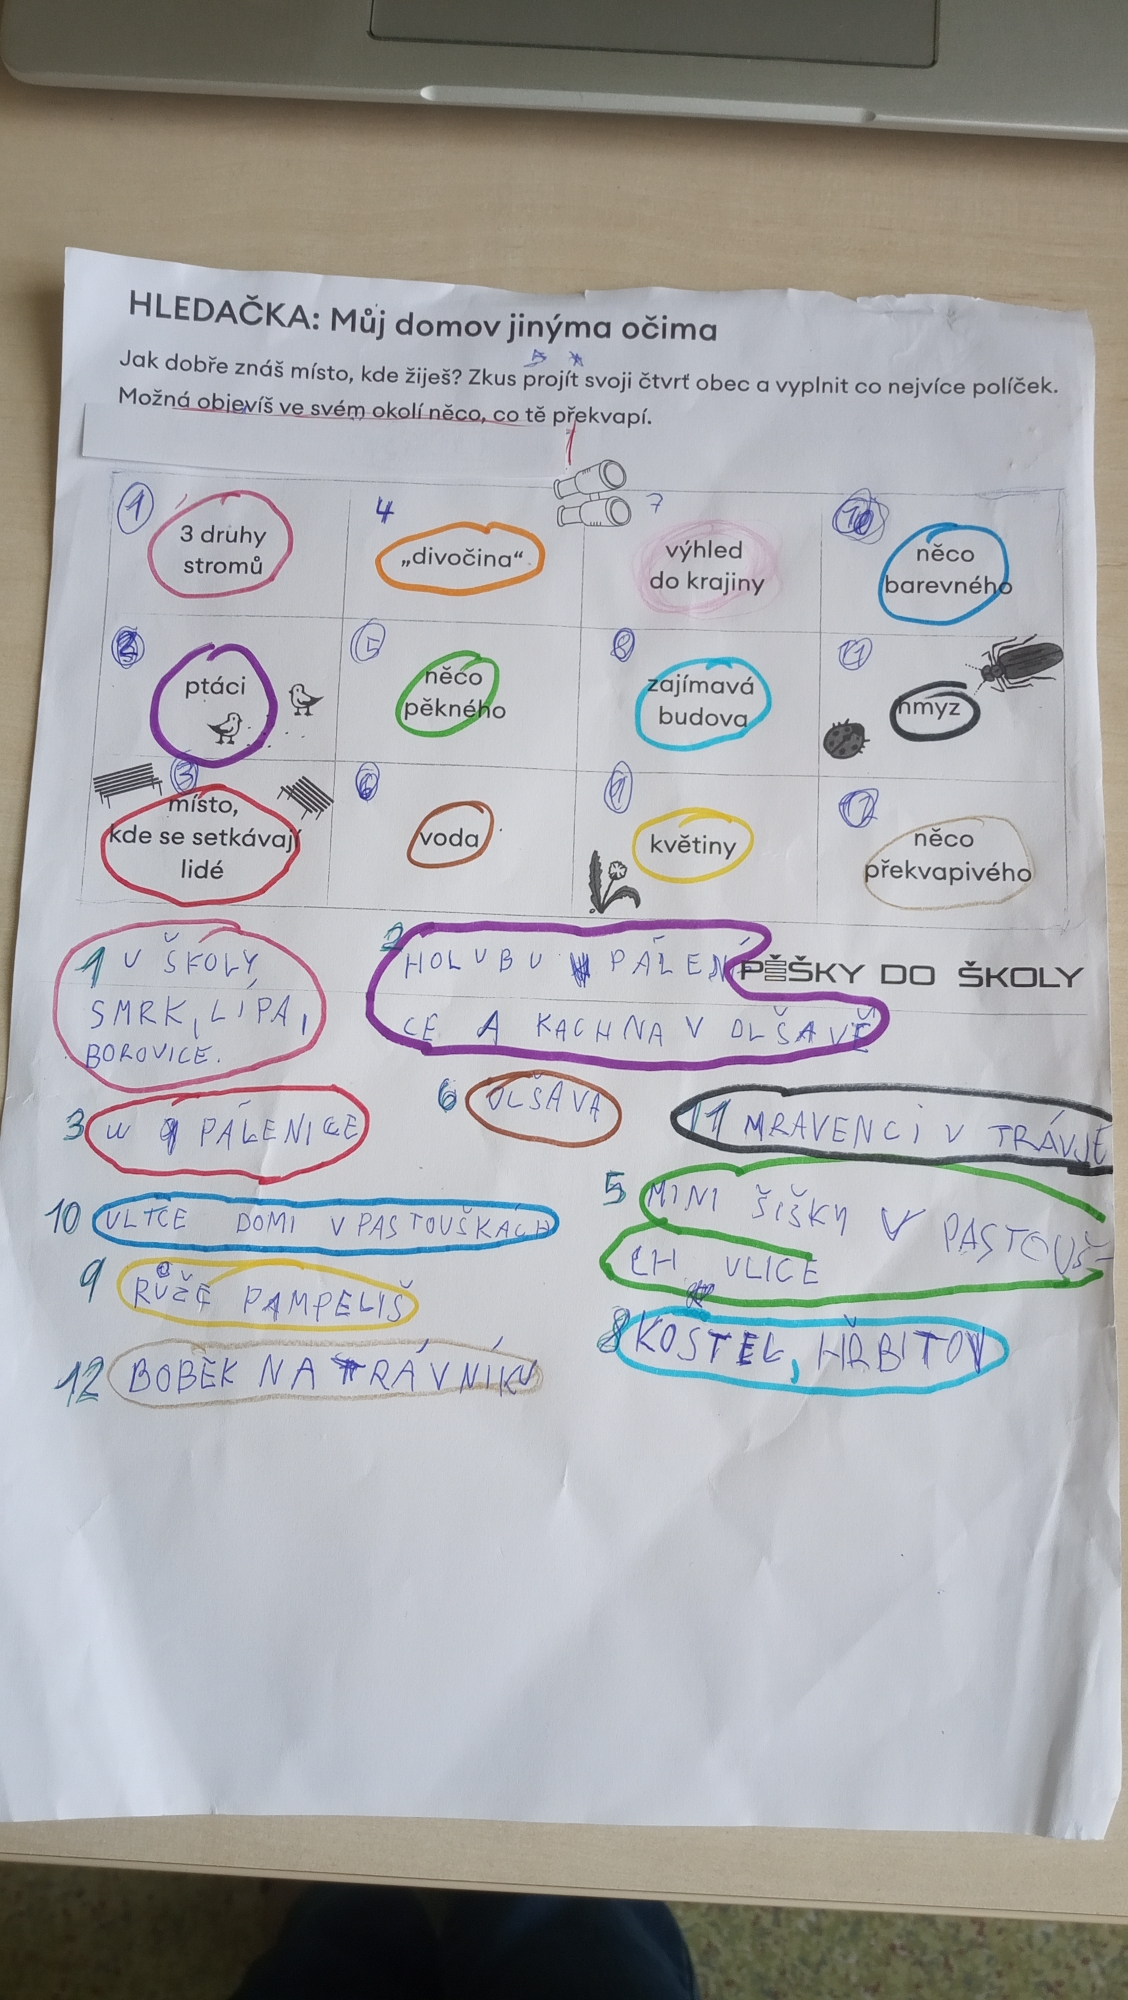 HLEDAČKA: Můj domov jinýma očima
Jak dobře znáš místo, kde žiješ? Zkus projít svoji čtvrť obec a vyplnit co nejvíce políček.
Možná objevíš ve svém okolí něco, co tě překvapí.
1
3 druhy
stromů
4
„divočina“
7
výhled
do krajiny
10
něco
barevného
2
ptáci
5
něco
pěkného
8
zajímavá
budova
11
hmyz
3
místo,
kde se setkávají
lidé
6
voda
9
květiny
12
něco
překvapivého
PĚŠKY DO ŠKOLY
1 U ŠKOLY
SMRK, LÍPA,
BOROVICE.
2 HOLUB U PÁLENI
CE A KACHNA V OLŠAVĚ
3 U PÁLENICE
6 OLŠAVA
11 MRAVENCI V TRÁVJE
10 ULICE DOMI V PASTOUŠKÁCH
5 MINI ŠIŠKY V PASTOUŠ-
CH ULICE
9 RŮŽE PAMPELIŠ
8 KOSTEL, HŘBITOV
12 BOBEK NA TRÁVNÍKU